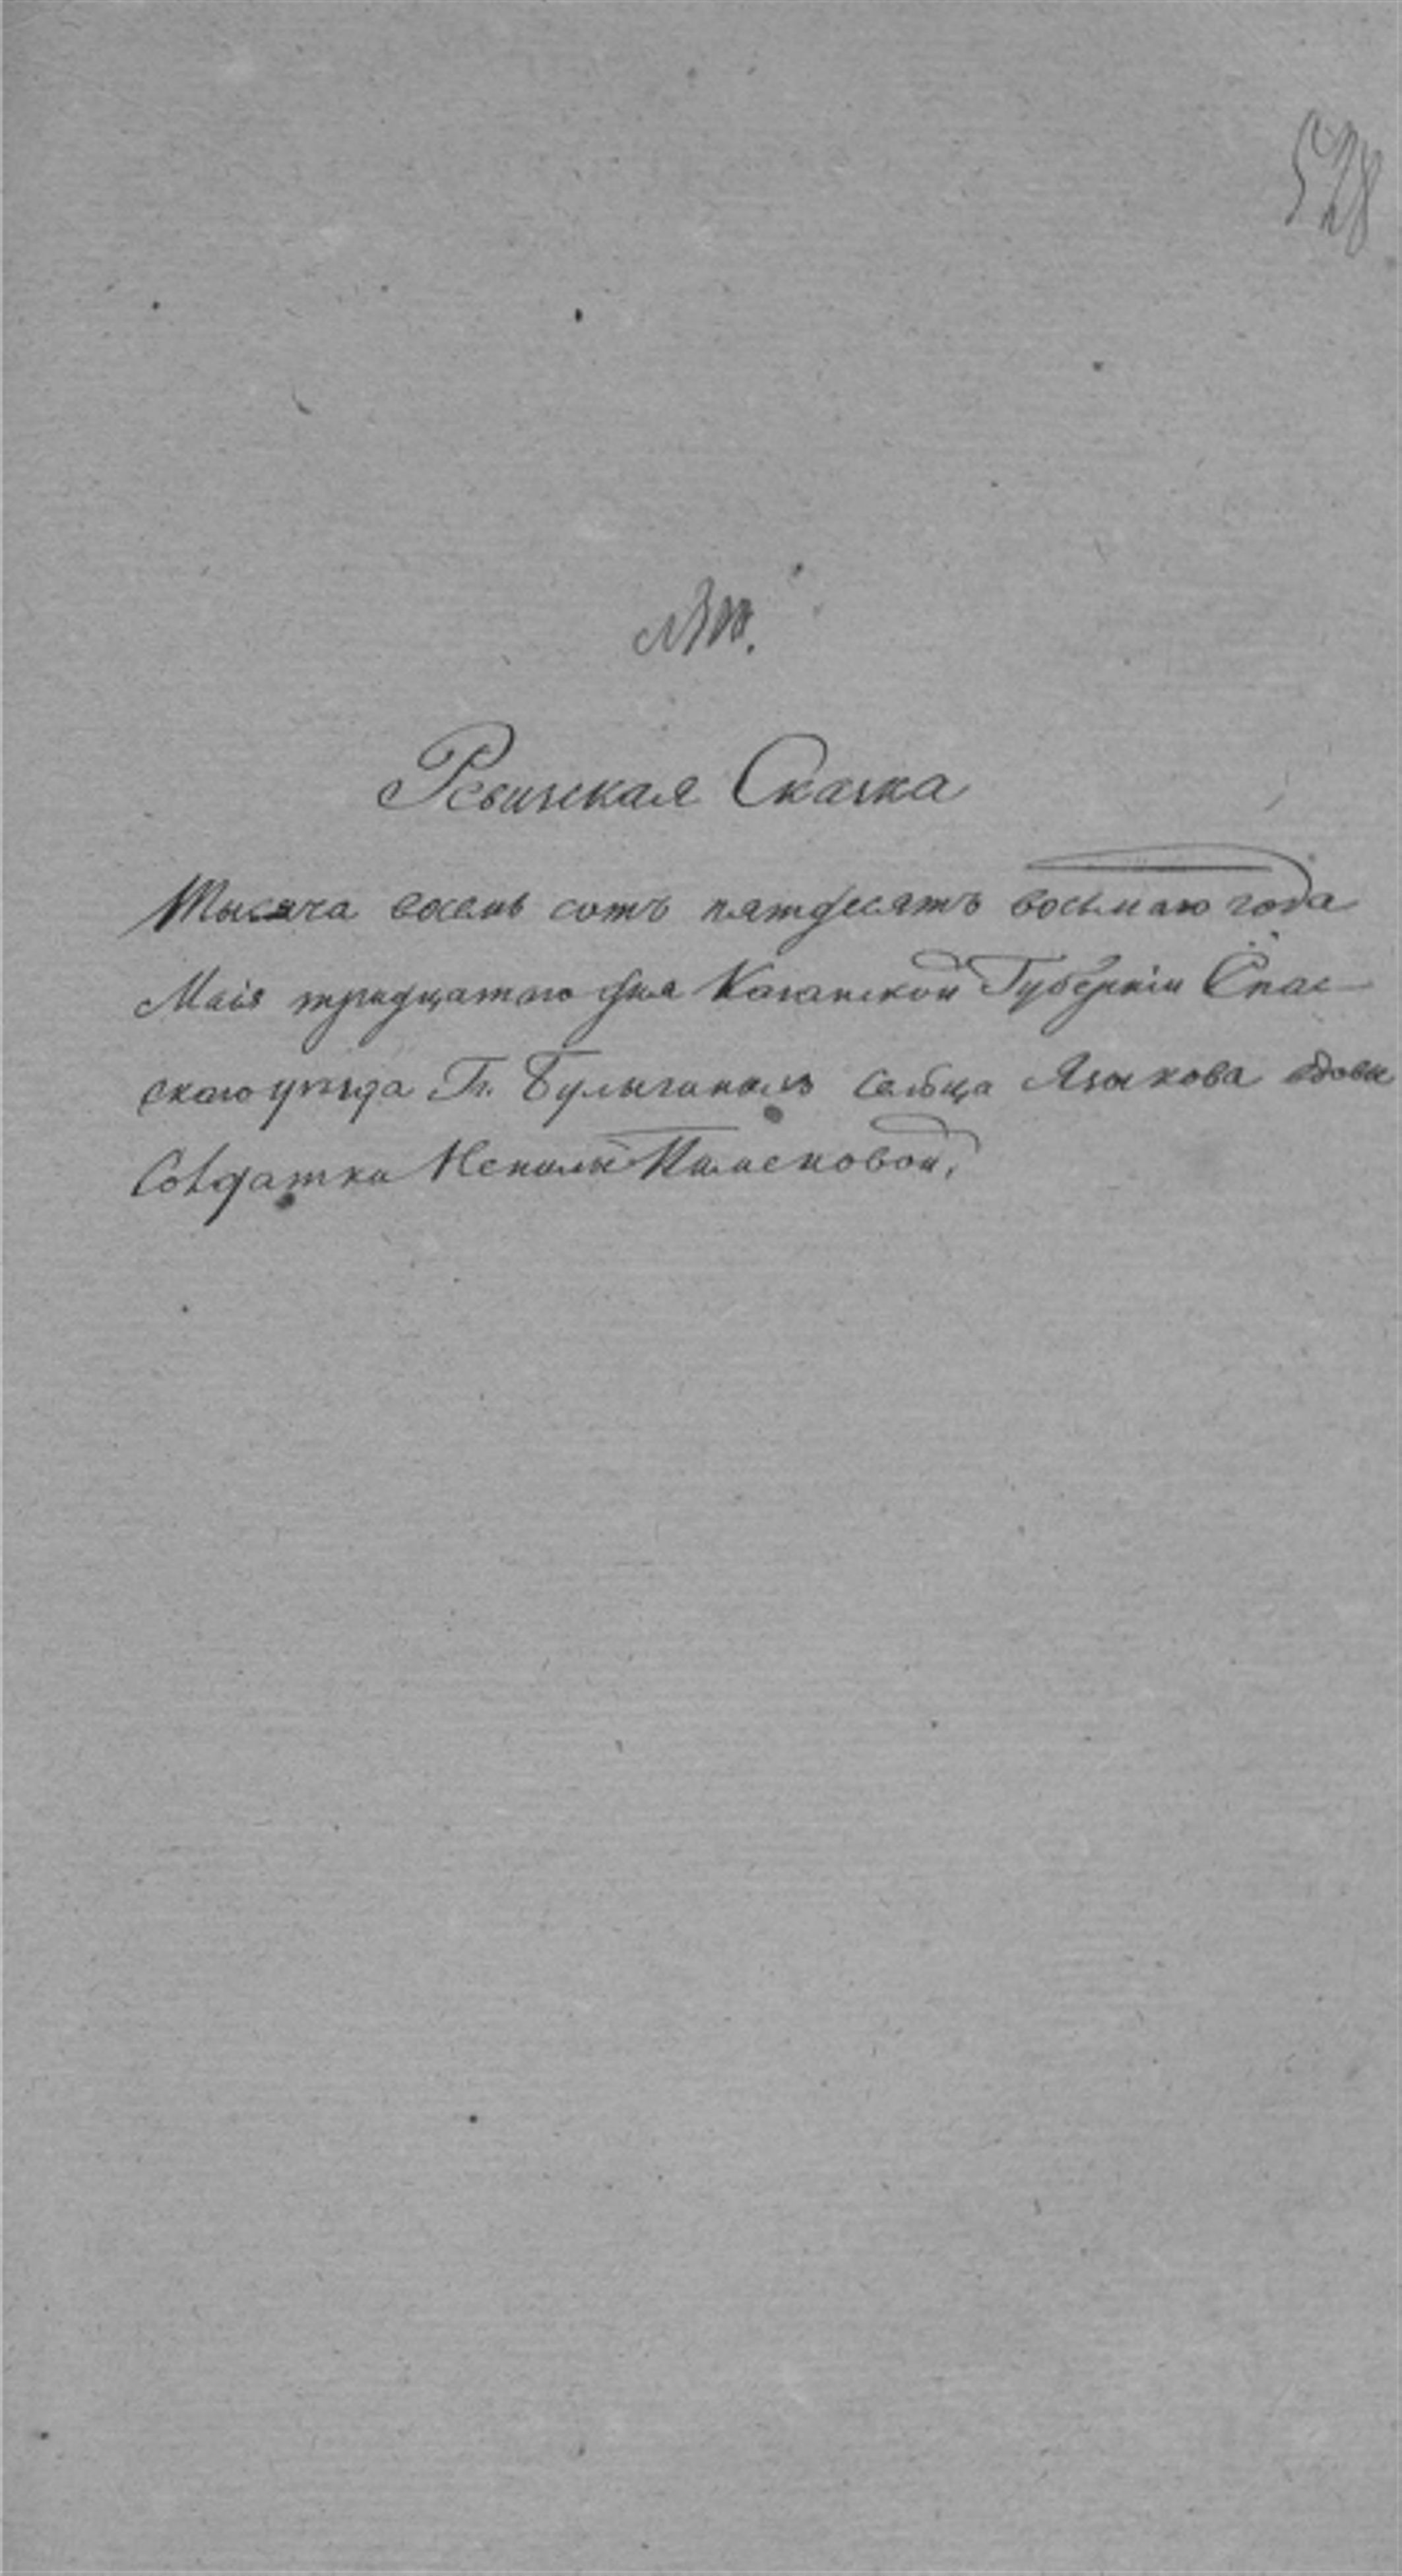 528
Ревизская Сказка
Тысяча восемь сотъ пятдесятъ восьмаго года
Маія тридцатаго дня Казанской Губерніи Спас
скаго уѣзда Гг. Булыгиныхъ сельца Языкова вдовы
Солдатки